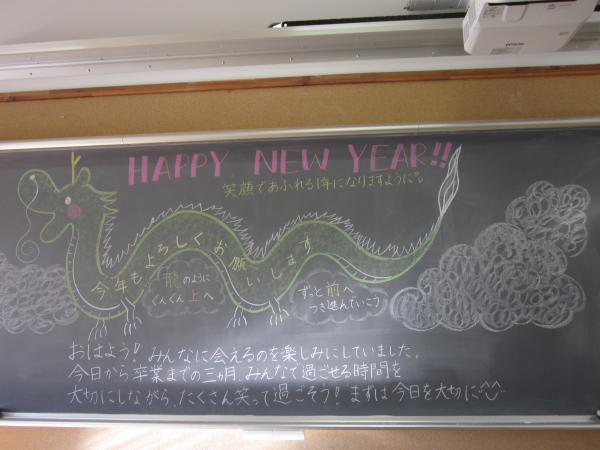 EPSON
HAPPY NEW YEAR!!
笑顔であふれる1年になりますように。
今年もよろしくお願いします
龍のように
ぐんぐん上へ
ずっと前へ
つき進んでいこう
おはよう！みんなに会えるのを楽しみにしていました。
今日から卒業までの三ヵ月、みんなで過ごせる時間を
大切にしながら、たくさん笑って過ごそう！まずは今日を大切に^^